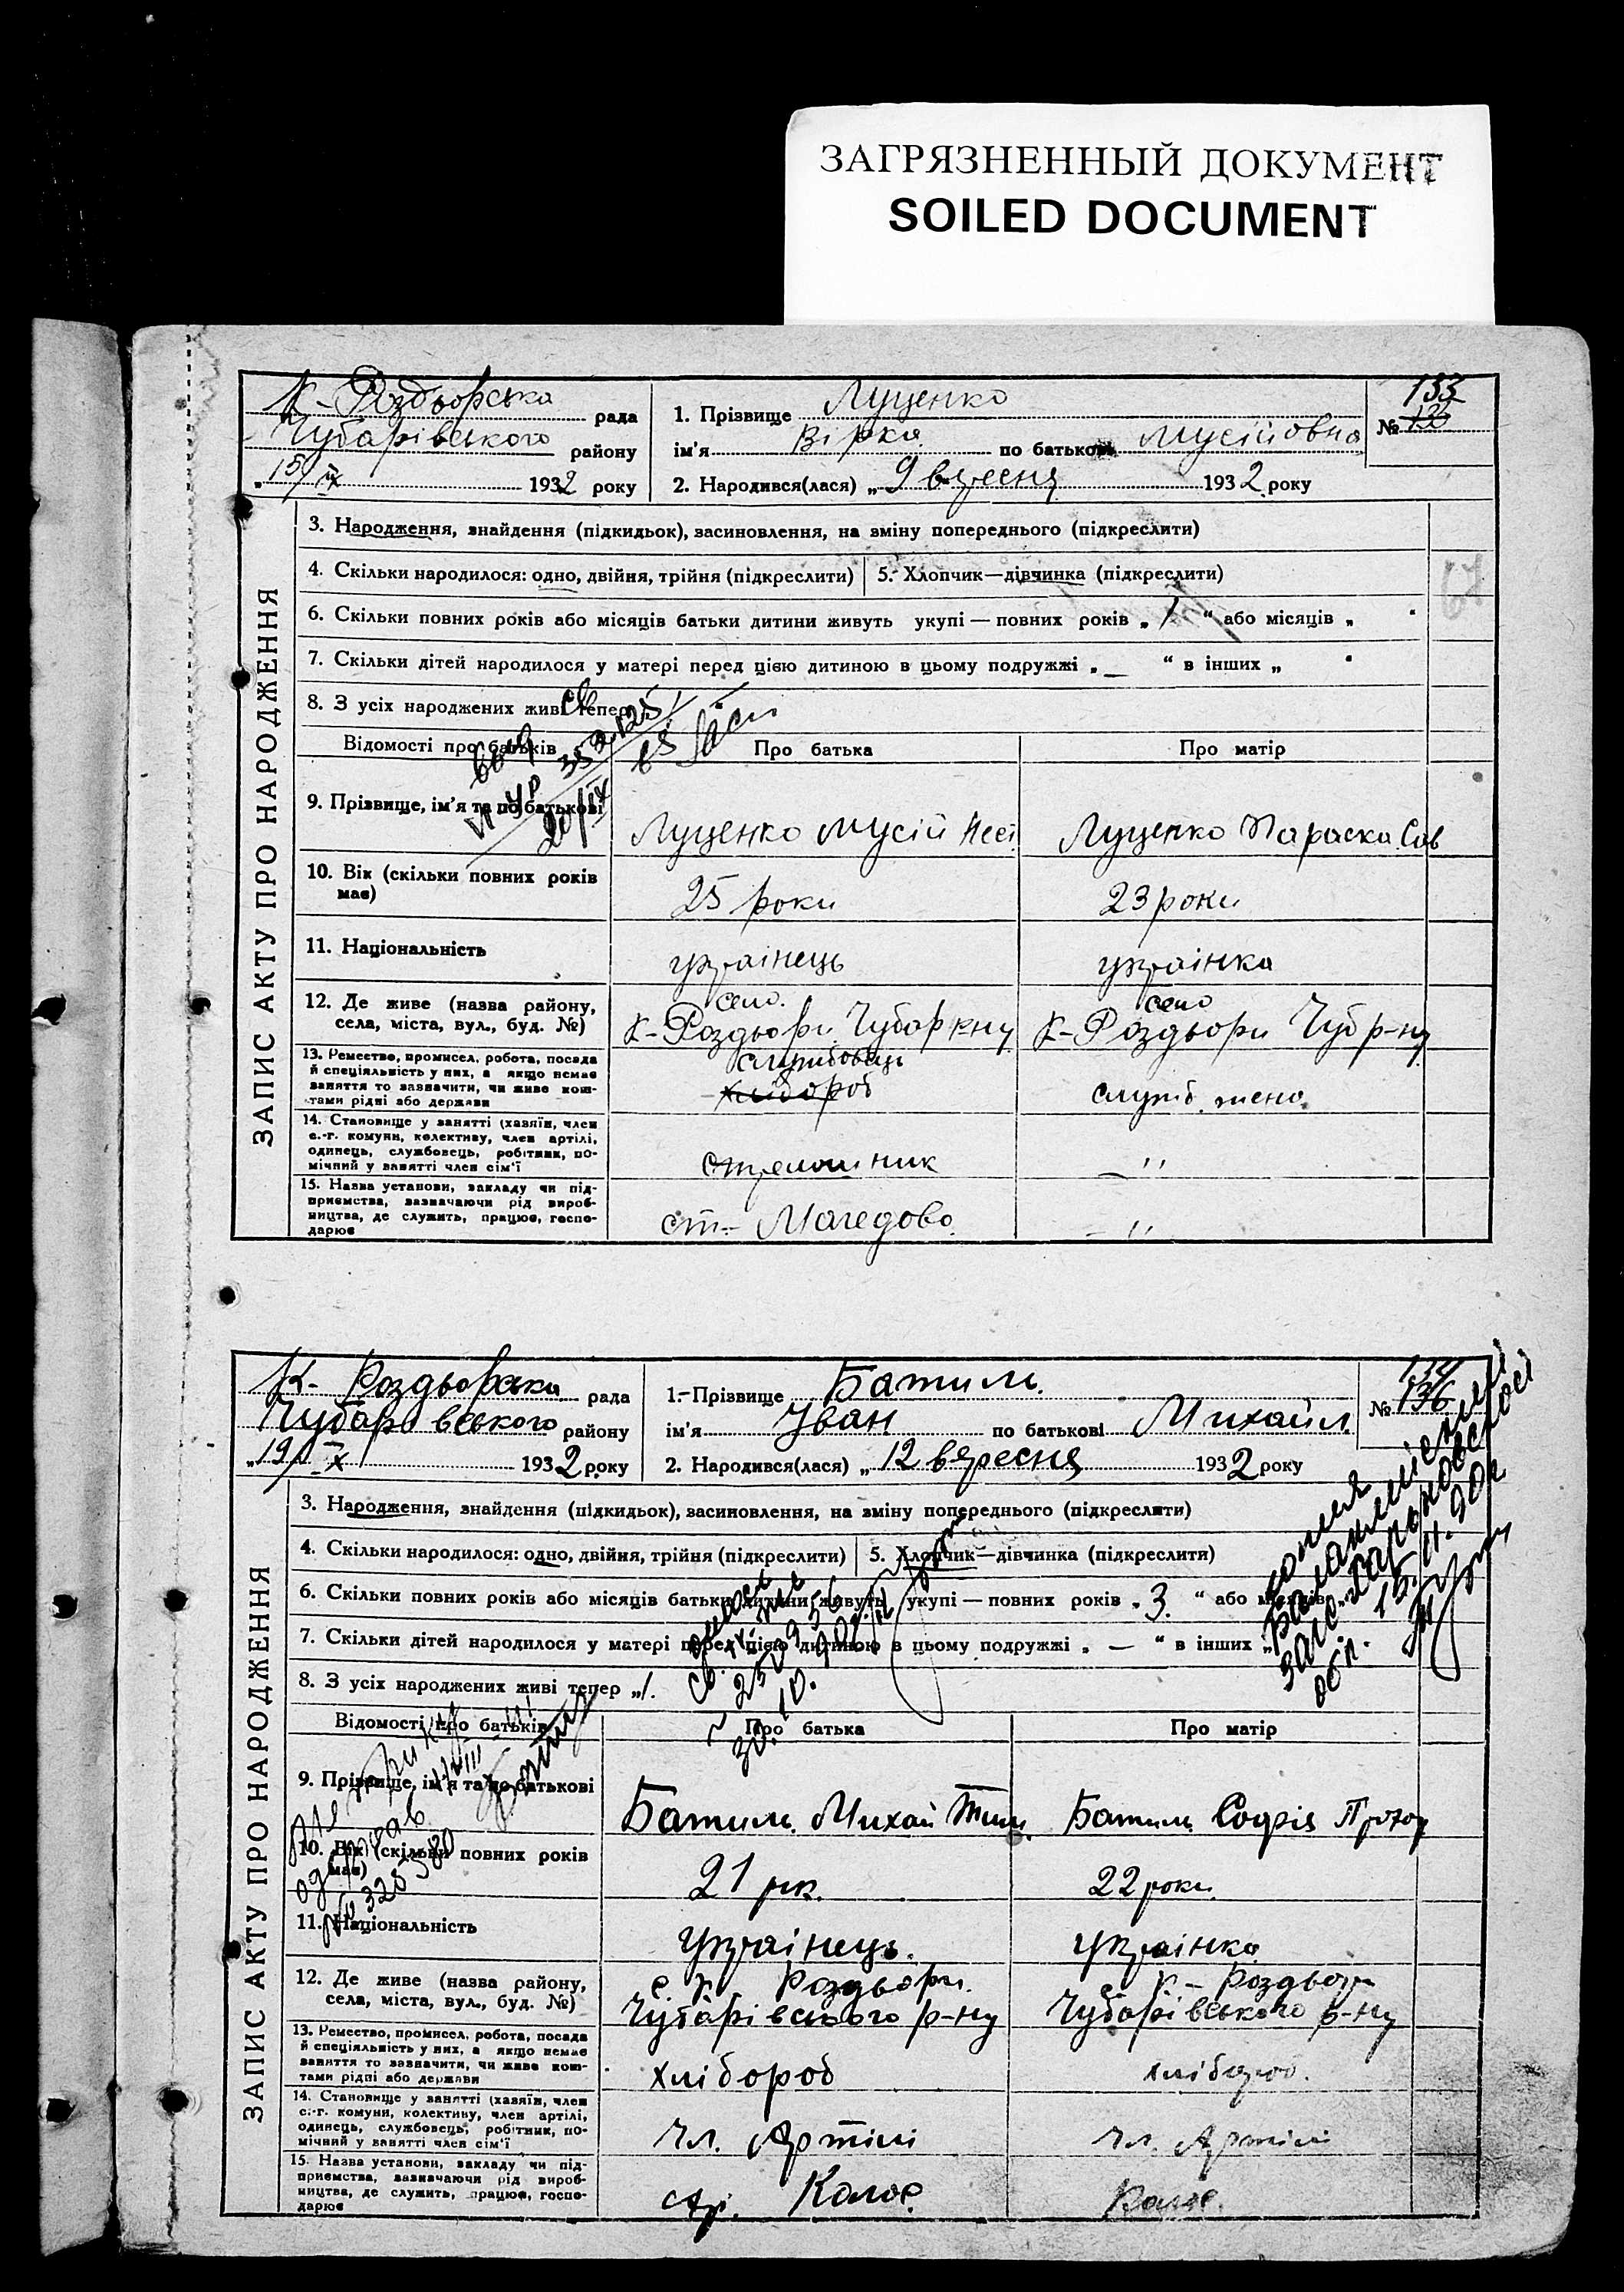 ЗАГРЯЗНЕННЫЙ ДОКУМЕНТ
SOILED DOCUMENT
К-Роздьорська рада
Чубарівського району
"15/IX 1932 року
1. Прізвище Луценко
ім'я Вірка по батькові Мусійовна
2. Народився(лася) „9 вересня 1932 року
133
№ 135
ЗАПИС АКТУ ПРО НАРОДЖЕННЯ
3. Народження, знайдення (підкидьок), засиновлення, на зміну попереднього (підкреслити)
4. Скільки народилося: одно, двійня, трійня (підкреслити) 5. Хлопчик—дівчинка (підкреслити)
67
6. Скільки повних років або місяців батьки дитини живуть укупі — повних років „ 1 “ або місяців „ “
7. Скільки дітей народилося у матері перед цією дитиною в цьому подружжі „ — “ в інших „ “
8. З усіх народжених живі тепер
Відомості про батьків Про батька Про матір
9. Прізвище, ім'я та по батькові Луценко Мусій Несі Луценко Параска Сав
10. Вік (скільки повних років має) 25 роки 23 роки
11. Національність українець українка
12. Де живе (назва району, села, міста, вул., буд. №) село К-Роздьори Чубар рну село К-Роздьори Чуб р-ну
13. Ремество, промисел, робота, посада й спеціяльність у них, а якщо немає заняття то зазначити, чи живе коштами рідні або держави службовець хлібороб служб. жена
14. Становище у занятті (хазяїн, член с.-г. комуни, колективу, член артілі, одинець, службовець, робітник, помічний у занятті член сім'ї стрелошник — "
15. Назва установи, закладу чи підприємства, зазначаючи рід виробництва, де служить, працює, господарює ст.- Магедово — "
К- Роздьорська рада
Чубарівського району
„19/IX 1932 року
1. Прізвище Батим.
ім'я Іван по батькові Михайл.
2. Народився(лася) „12 вересня 1932 року
134
№ 136
ЗАПИС АКТУ ПРО НАРОДЖЕННЯ
3. Народження, знайдення (підкидьок), засиновлення, на зміну попереднього (підкреслити)
4. Скільки народилося: одно, двійня, трійня (підкреслити) 5. Хлопчик—дівчинка (підкреслити)
6. Скільки повних років або місяців батьки дитини живуть укупі — повних років „3. “ або місяців „
7. Скільки дітей народилося у матері перед цією дитиною в цьому подружжі „ — “ в інших „
8. З усіх народжених живі тепер „1.
Відомості про батьків Про батька Про матір
9. Прізвище, ім'я та по батькові Батим. Михай Тим. Батим. Софія
10. Вік (скільки повних років має) 21 рік. 22 роки.
11. Національність Українець. українка
12. Де живе (назва району, села, міста, вул., буд. №) с. К- Роздьори. Чубарівського р-ну с. К- Роздьори Чубарівського р-ну
13. Ремество, промисел, робота, посада й спеціяльність у них, а якщо немає заняття то зазначити, чи живе коштами рідні або держави хлібороб хлібороб.
14. Становище у занятті (хазяїн, член с.-г. комуни, колективу, член артілі, одинець, службовець, робітник, помічний у занятті член сім'ї Чл. Артілі Чл. Артілі
15. Назва установи, закладу чи підприємства, зазначаючи рід виробництва, де служить, працює, господарює Ар. Колос. Колос.